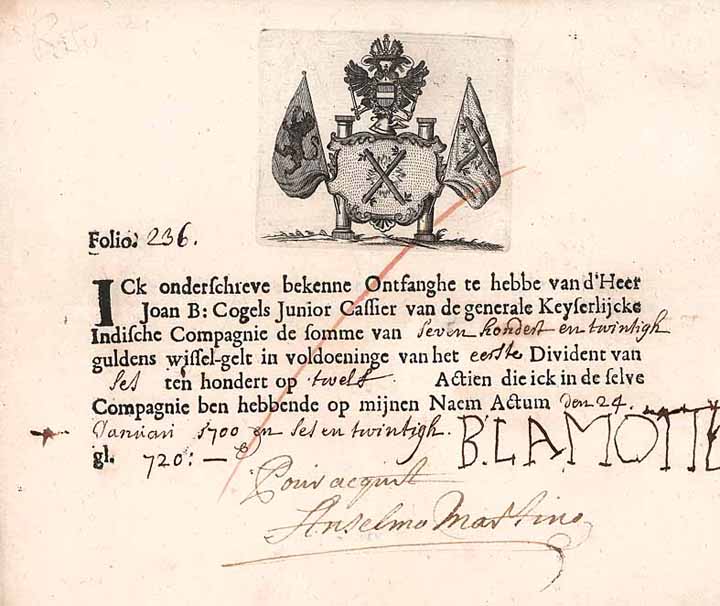 Folio: 236.
ICk onderschreve bekenne Ontfanghe te hebbe van d'Heer
Joan B: Cogels Junior Cassier van de generale Keyserlijcke
Indische Compagnie de somme van seven hondert en twintigh
guldens wissel-gelt in voldoeninge van het eerste Divident van
ses ten hondert op twelf Actien die ick in de selve
Compagnie ben hebbende op mijnen Naem Actum den 24.
Januari 1700 en ses en twintigh. B. LAMOTTE
gl. 720: —
Pour acquit
Anselmo Martino